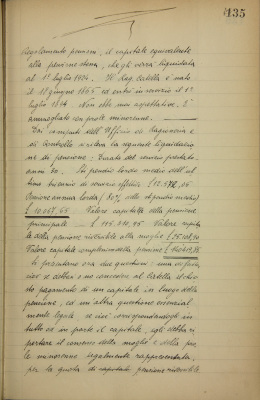 135
Regolamento pensioni, il capitale equivalente
alla pensione stessa, che gli verrà liquidata
al 1° luglio 1924. Il Rag. Catella è nato
il 1° giugno 1865 ed entrò in servizio il 1°
luglio 1894. Non ebbe mai aspettative. È
ammogliato con prole minorenne.
Dai computi dell'Ufficio di Ragioneria e
di Controllo risulta la seguente liquidazio-
ne di pensione: Durata del servizio prestato
anni 30. Stipendio lordo medio dell'ul-
timo di servizio effettivo £
Pensione annua lorda (80% dello stipendio medio)
£ 10.057,65 Valore capitale della pensione
principale £ Valore capita-
le della pensione alla moglie £
Valore capitale complessivo della pensione £
Si presentano ora due questioni: una
cioè se debba o no concedersi al Catella il chie-
sto pagamento di un capitale in luogo della
pensione, ed un'altra questione essenzial-
mente legale se cioè corrispondendogli in
tutto od in parte il capitale, egli debba ri-
portare il consenso della moglie e della pro-
le minorenne legalmente rappresentata,
per la quota di capitale pensione